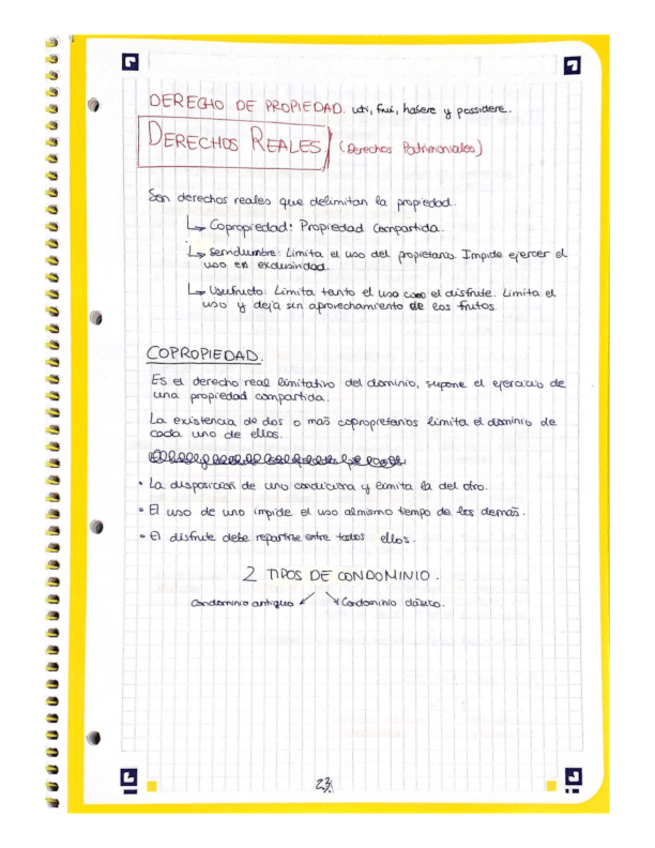 DERECHO DE PROPIEDAD. uti, frui, habere y possidere.
DERECHOS REALES. (Derechos Patrimoniales)
Son derechos reales que delimitan la propiedad.
↳ Copropiedad: Propiedad Compartida.
↳ Servidumbre: Limita el uso del propietario. Impide ejercer el
uso en exclusividad.
↳ Usufructo: Limita tanto el uso como el disfrute. Limita el
uso y deja sin aprovechamiento de los frutos.
COPROPIEDAD.
Es el derecho real limitativo del dominio, supone el ejercicio de
una propiedad compartida.
La existencia de dos o más copropietarios limita el dominio de
cada uno de ellos.
• La disposición de uno condiciona y limita la del otro.
• El uso de uno impide el uso al mismo tiempo de los demás.
• El disfrute debe repartirse entre todos ellos.
2 TIPOS DE CONDOMINIO.
Condominio antiguo ↙ ↘ Condominio clásico.
23.